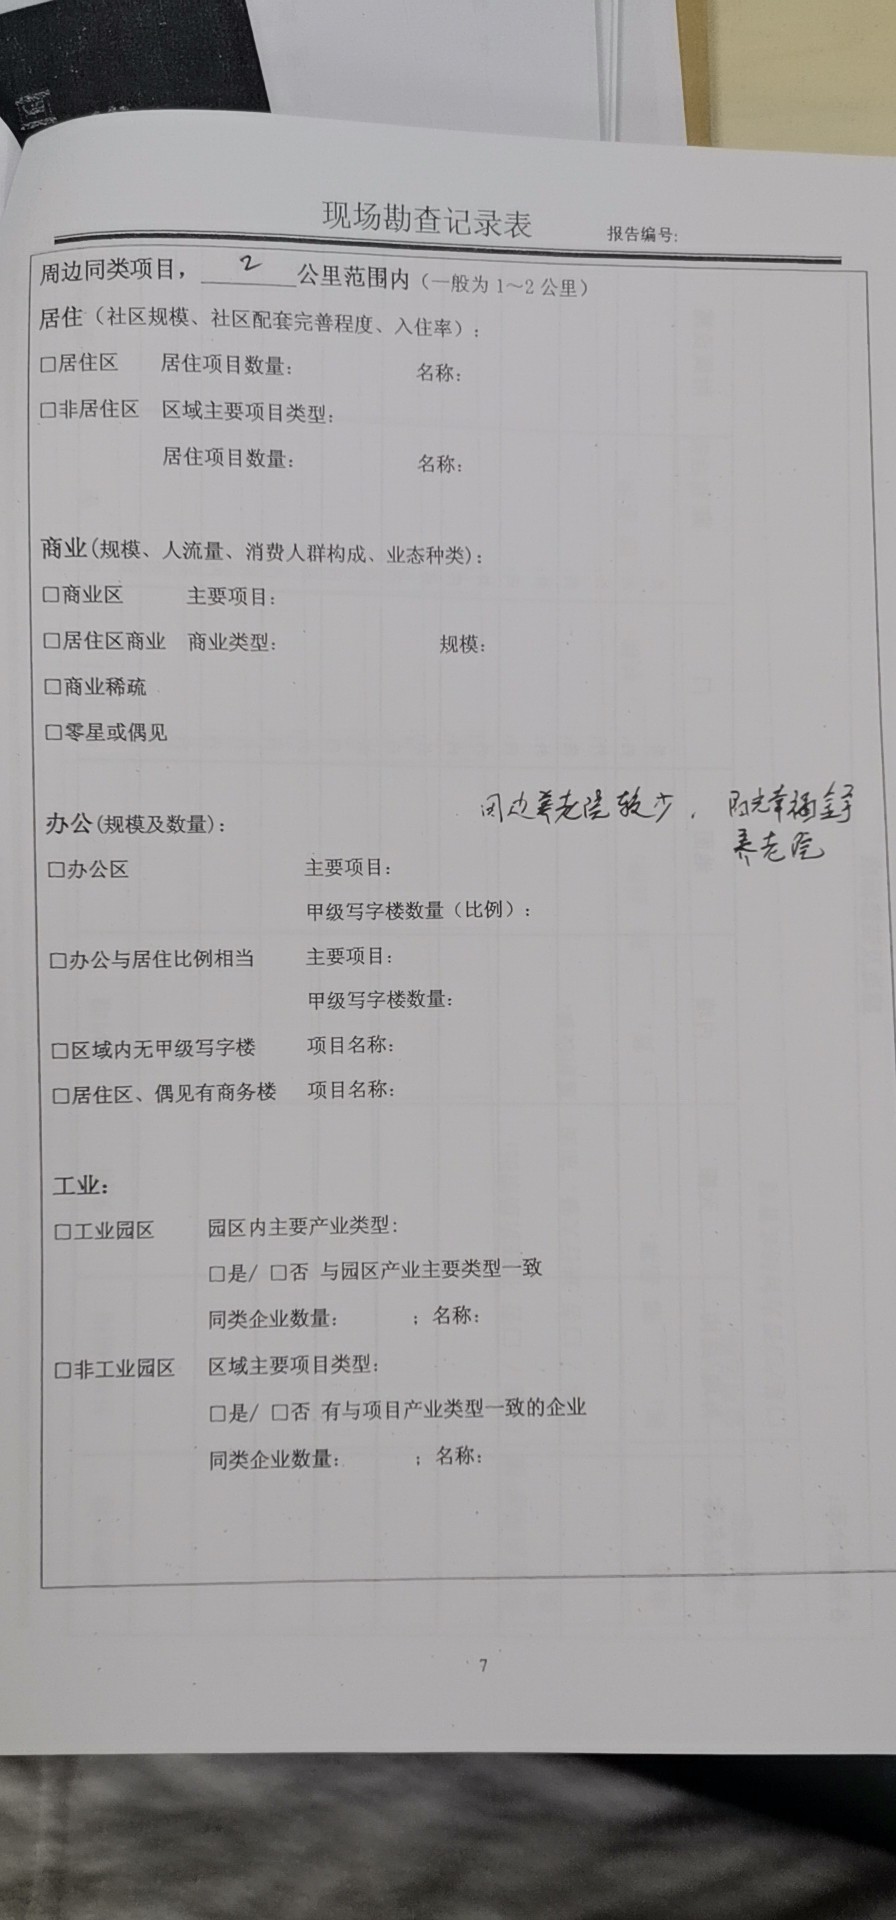 现场勘查记录表 报告编号:
周边同类项目，2公里范围内（一般为1～2公里）
居住（社区规模、社区配套完善程度、入住率）:
□居住区 居住项目数量: 名称:
□非居住区 区域主要项目类型:
居住项目数量: 名称:
商业(规模、人流量、消费人群构成、业态种类):
□商业区 主要项目:
□居住区商业 商业类型: 规模:
□商业稀疏
□零星或偶见
周边养老院较少，阳光幸福
养老院
办公(规模及数量):
□办公区 主要项目:
甲级写字楼数量（比例）:
□办公与居住比例相当 主要项目:
甲级写字楼数量:
□区域内无甲级写字楼 项目名称:
□居住区、偶见有商务楼 项目名称:
工业:
□工业园区 园区内主要产业类型:
□是/ □否 与园区产业主要类型一致
同类企业数量: ；名称:
□非工业园区 区域主要项目类型:
□是/ □否 有与项目产业类型一致的企业
同类企业数量: ；名称:
7